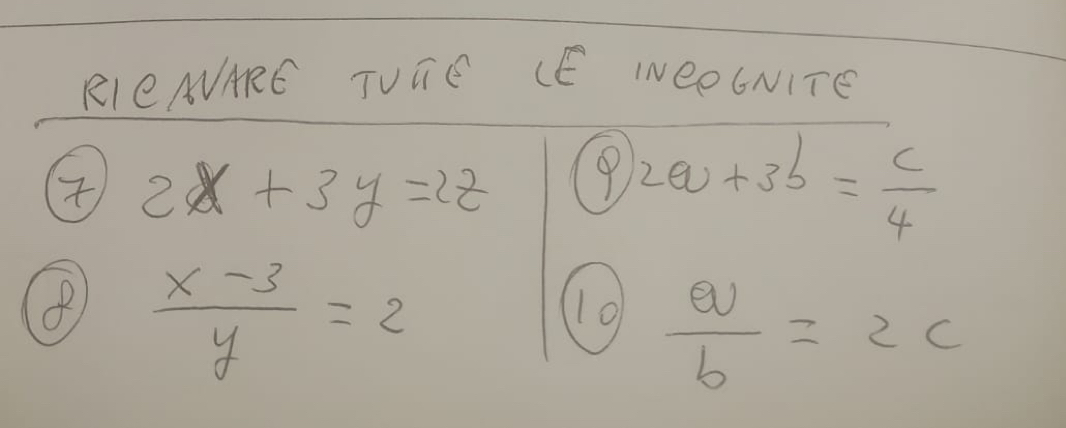 RICAVARE TUTTE LE INCOGNITE
7 2x + 3y = 2z
8 x - 3 / y = 2
9 2a + 3b = c / 4
10 a / b = 2c